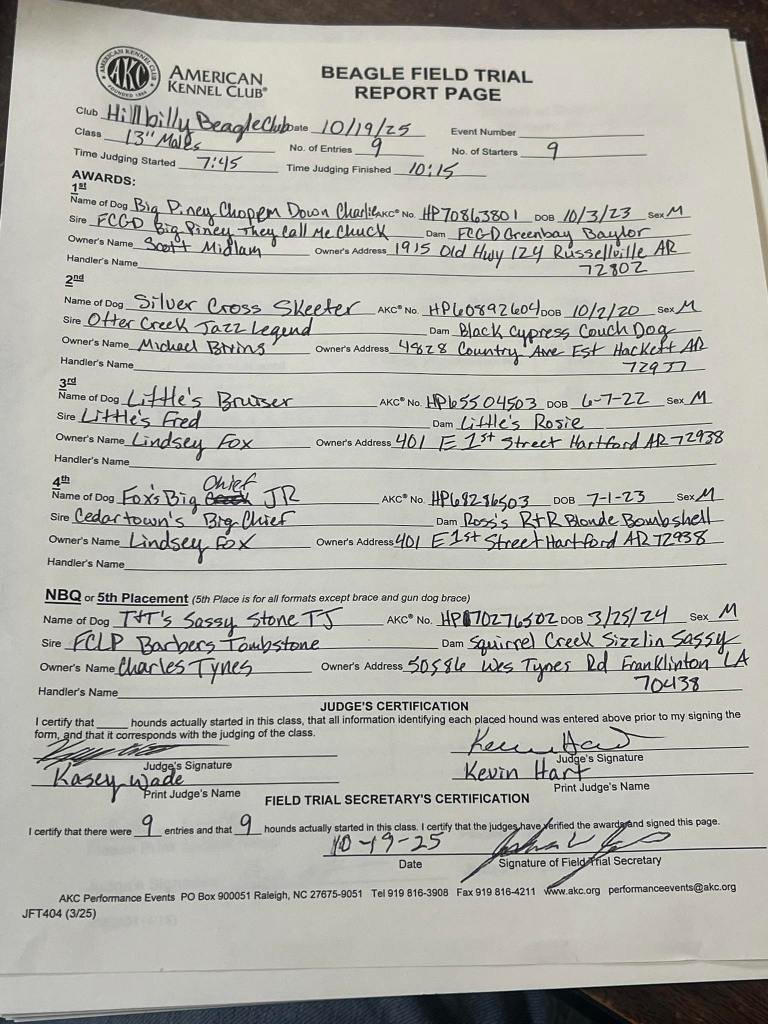 AMERICAN KENNEL CLUB
FOUNDED 1884
AKC
AMERICAN
KENNEL CLUB®
BEAGLE FIELD TRIAL
REPORT PAGE
Club Hillbilly Beagle Club Date 10/19/25 Event Number
Class 13" Males No. of Entries 9 No. of Starters 9
Time Judging Started 7:45 Time Judging Finished 10:15
AWARDS:
1st
Name of Dog Big Piney Choppem Down Charlie AKC® No. HP70863801 DOB 10/3/23 Sex M
Sire FCGD Big Piney They Call Me Chuck Dam FCGD Greenbay Baylor
Owner's Name Scott Midlam Owner's Address 1915 Old Hwy 124 Russellville AR
72802
Handler's Name
2nd
Name of Dog Silver Cross Skeeter AKC® No. HP60892604 DOB 10/2/20 Sex M
Sire Otter Creek Jazz Legend Dam Black Cypress Couch Dog
Owner's Name Michael Owner's Address 4828 Country Ave Est Hackett AR
Handler's Name
3rd
Name of Dog Little's Bruiser AKC® No. HP65504503 DOB 6-7-22 Sex M
Sire Little's Fred Dam Little's Rosie
Owner's Name Lindsey Fox Owner's Address 401 E 1st Street Hartford AR 72938
Handler's Name
4th
Name of Dog Fox's Big Chief JR AKC® No. HP68286503 DOB 7-1-23 Sex M
Sire Cedartown's Big Chief Dam Ross's R+R Blonde Bombshell
Owner's Name Lindsey Fox Owner's Address 401 E 1st Street Hartford AR 72938
Handler's Name
NBQ or 5th Placement (5th Place is for all formats except brace and gun dog brace)
Name of Dog T+T's Sassy Stone TJ AKC® No. HP70276502 DOB 3/25/24 Sex M
Sire FCLP Barbers Tombstone Dam Squirrel Creek Sizzlin Sassy
Owner's Name Charles Tynes Owner's Address 50586 Wes Tynes Rd Franklinton LA
70438
Handler's Name
JUDGE'S CERTIFICATION
I certify that ____ hounds actually started in this class, that all information identifying each placed hound was entered above prior to my signing the
form, and that it corresponds with the judging of the class.
Judge's Signature Judge's Signature
Kasey Wade Kevin Hart
Print Judge's Name Print Judge's Name
FIELD TRIAL SECRETARY'S CERTIFICATION
I certify that there were 9 entries and that 9 hounds actually started in this class. I certify that the judges have verified the awards and signed this page.
10-19-25
Date Signature of Field Trial Secretary
AKC Performance Events PO Box 900051 Raleigh, NC 27675-9051 Tel 919 816-3908 Fax 919 816-4211 www.akc.org performanceevents@akc.org
JFT404 (3/25)